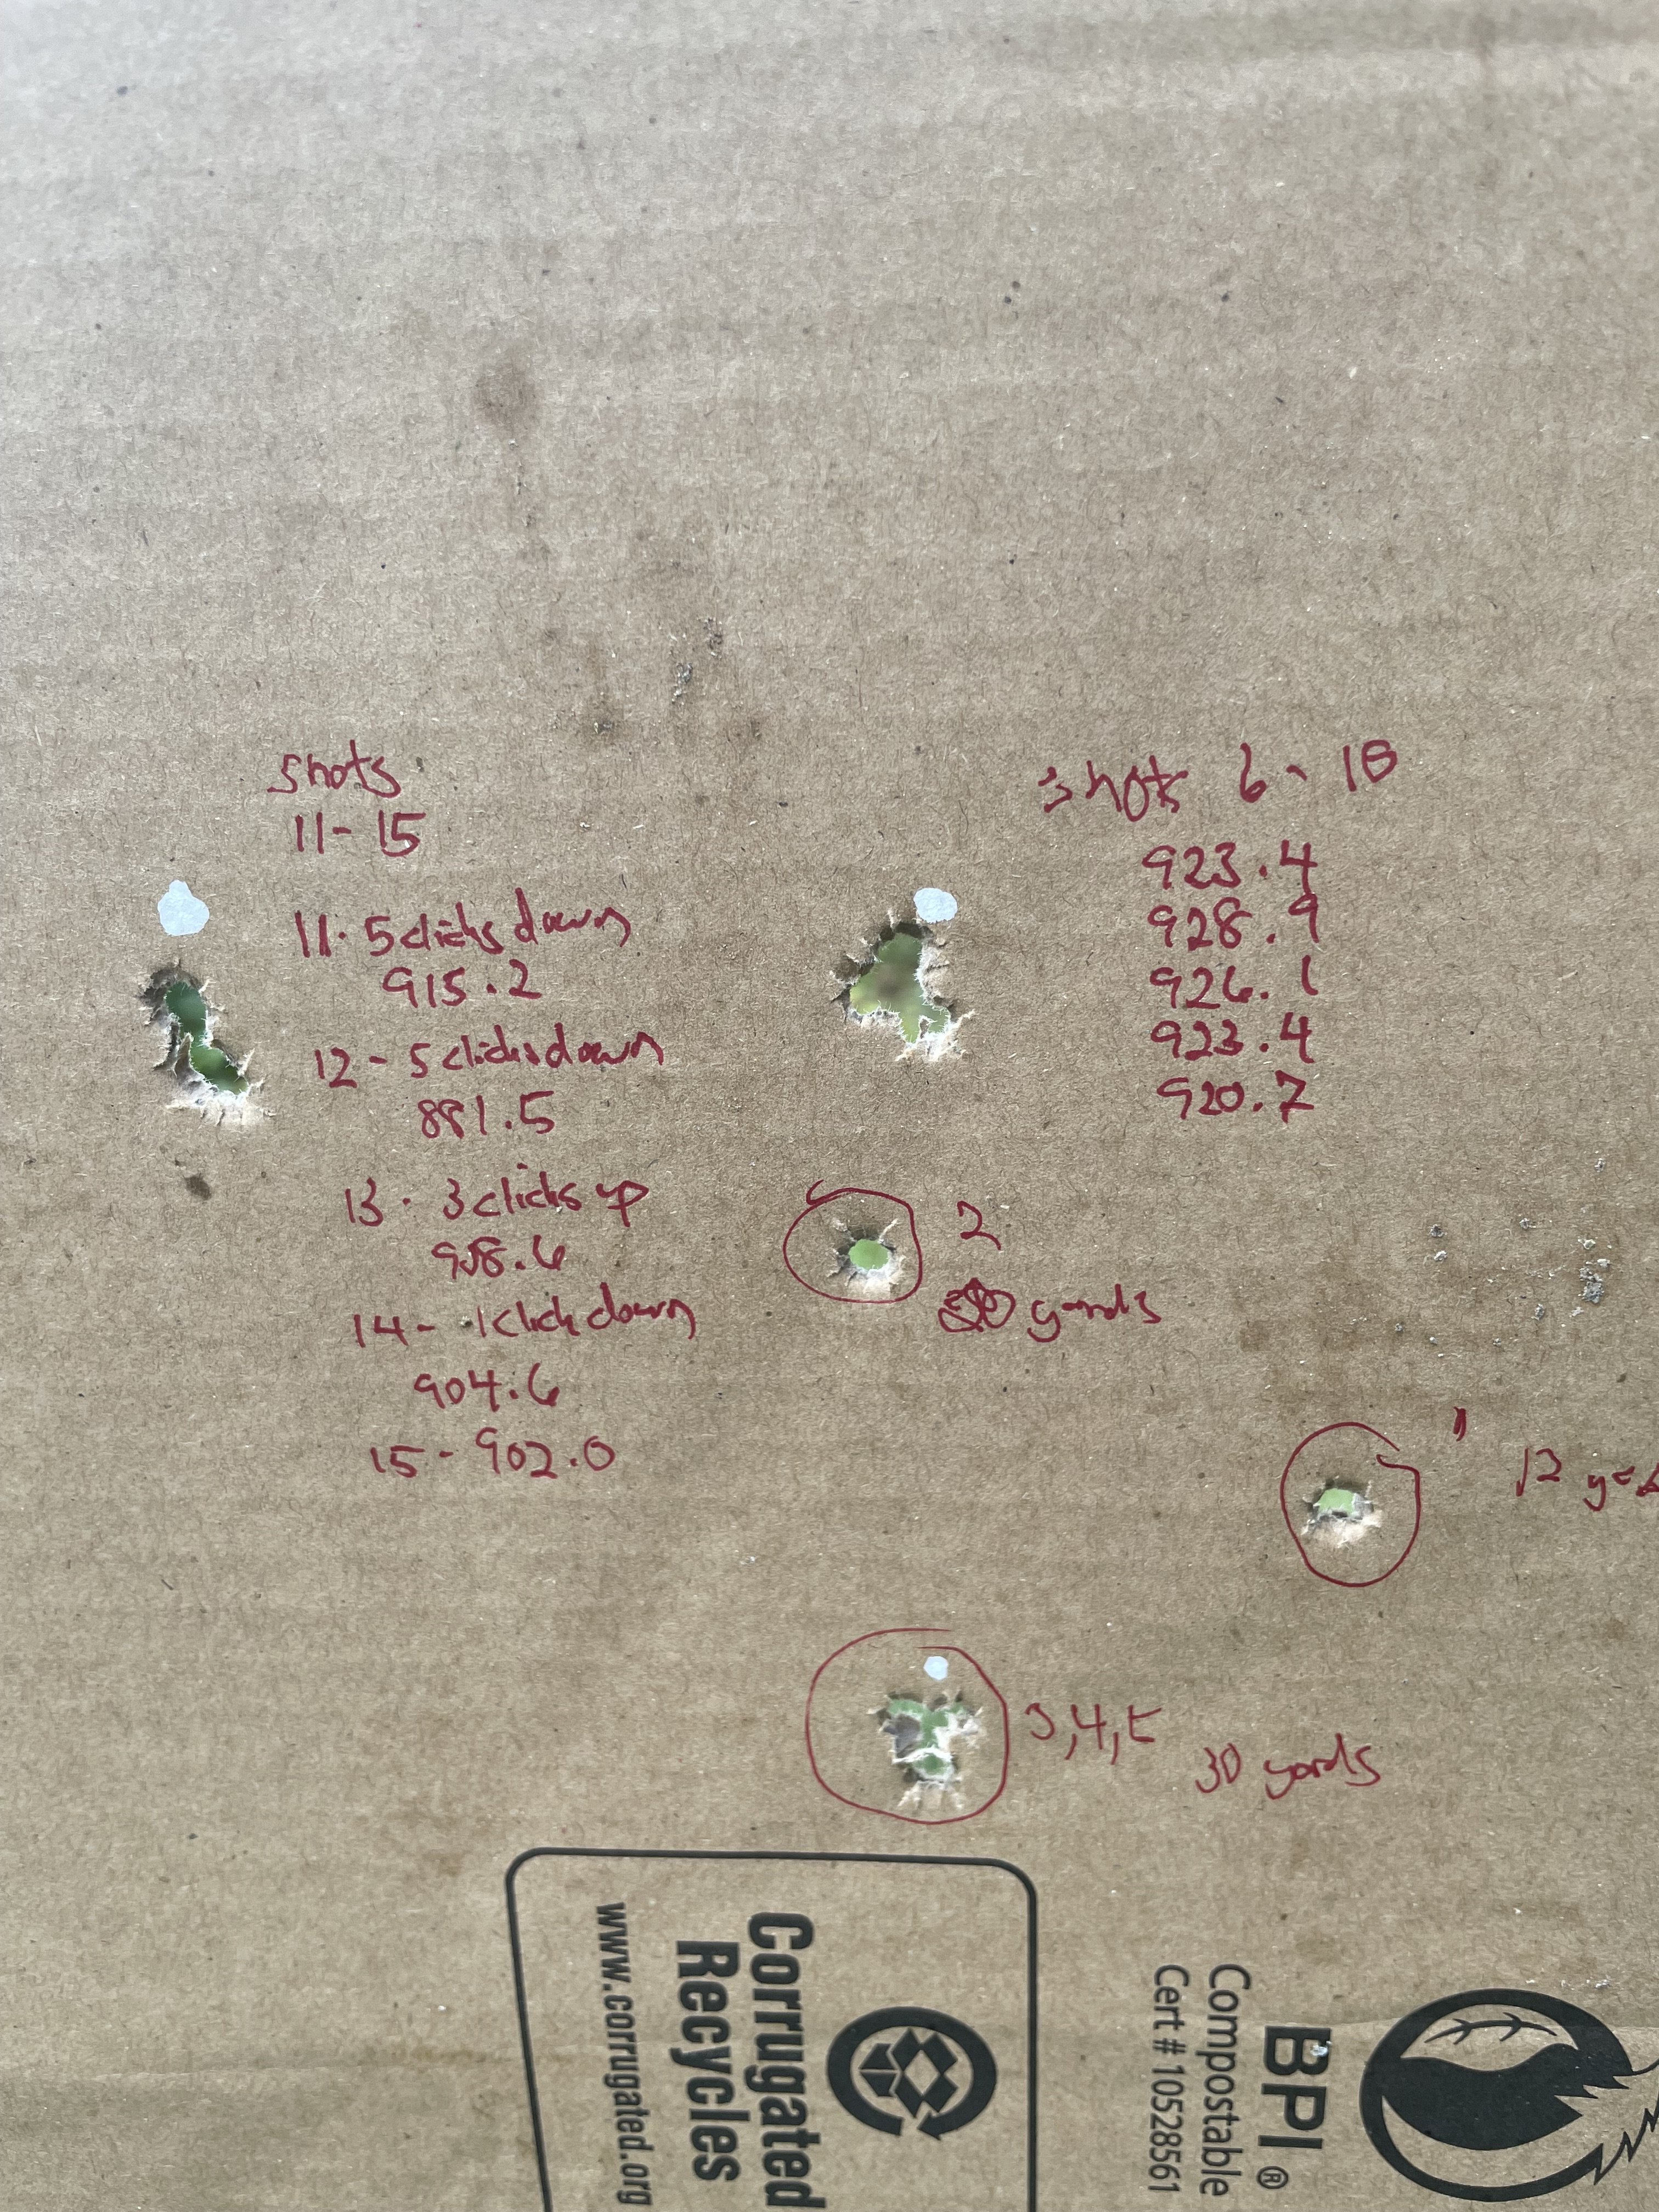 shots
11-15
11. 5 clicks down
915.2
12 - 5 clicks down
881.5
13. 3 clicks up
908.6
14 - 1 click down
904.6
15 - 902.0
shots 6 - 10
923.4
928.9
926.1
923.4
920.7
2
yards
1
12
3,4,5
30 yards
Corrugated
Recycles
www.corrugated.org
BPI ®
Compostable
Cert # 10528561